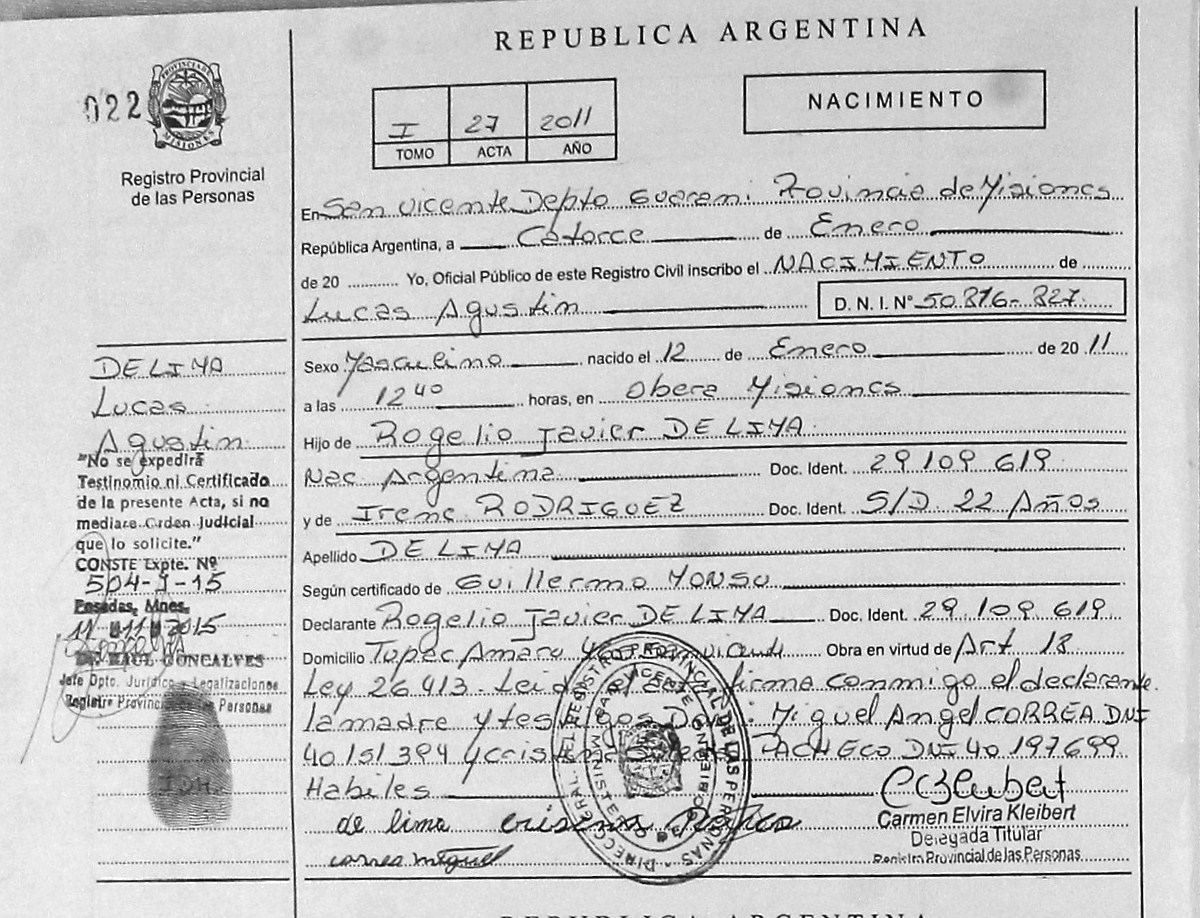 REPUBLICA ARGENTINA
022
PROVINCIA DE
MISIONES
Registro Provincial
de las Personas
I 27 2011
TOMO ACTA AÑO
NACIMIENTO
En San Vicente Depto Guarani Provincia de Misiones
República Argentina, a Catorce de Enero
de 20 Yo, Oficial Público de este Registro Civil inscribo el NACIMIENTO de
Lucas Agustin D. N. I. Nº 50.816-827
Sexo Masculino nacido el 12 de Enero de 20 11
a las 12 40 horas, en Obera Misiones
Hijo de Rogelio Javier DE LIMA
Nac. Argentina Doc. Ident. 29 109 619
y de Irene RODRIGUEZ Doc. Ident. S/D 22 Años
Apellido DE LIMA
Según certificado de Guillermo
Declarante Rogelio Javier DE LIMA Doc. Ident. 29.109 619
Domicilio Tupac Amaru Obra en virtud de Art 18
Ley 26.413. firma conmigo el declarante
la madre y testigos Miguel Angel CORREA DNI
40 151 394 y PACHECO DNI 40.197.699
Habiles
de lima
correa miguel
Carmen Elvira Kleibert
Delegada Titular
Registro Provincial de las Personas
DE LIMA
Lucas
Agustin
"No se expedirá
Testinomio ni Certificado
de la presente Acta, si no
mediare Orden Judicial
que lo solicite."
CONSTE Expte. Nº
504-J-15
Posadas, Mnes.
11 11 2015
Dr. RAUL GONCALVES
Jefe Dpto. Jurídico y Legalizaciones
Registro Provincial de las Personas
REPUBLICA ARGENTINA